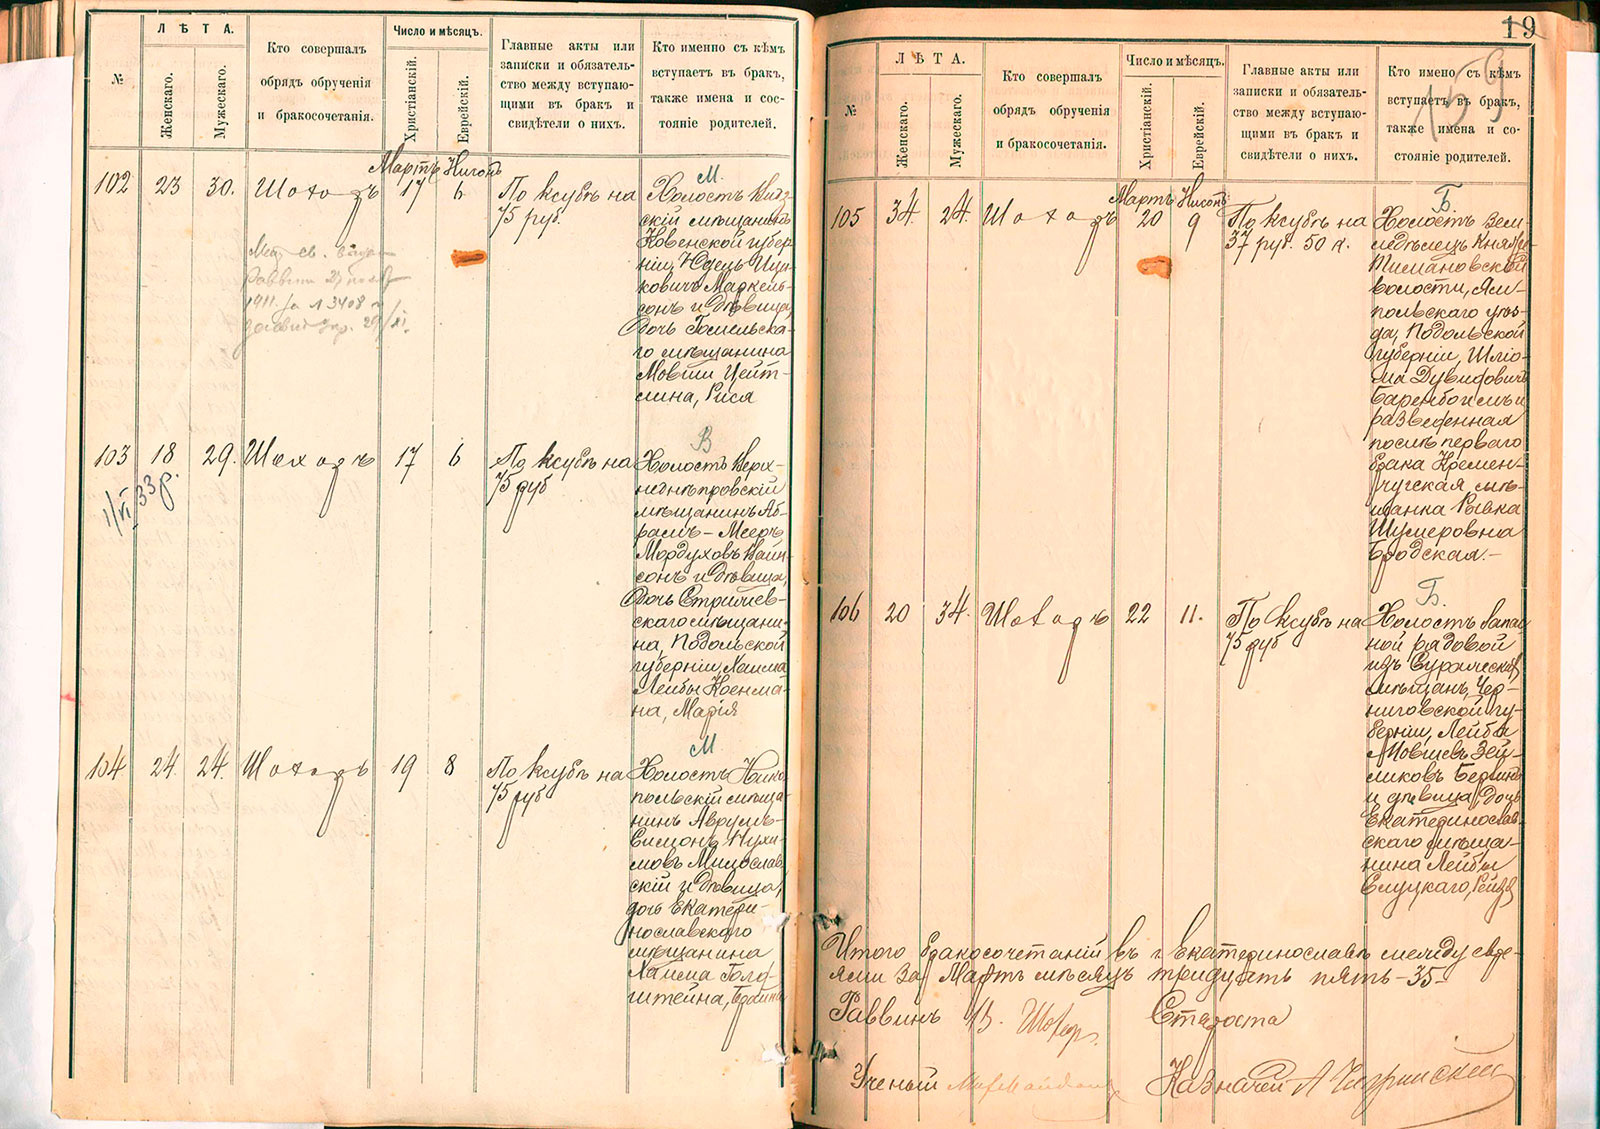 №
ЛѢТА.
Женскаго.
Мужескаго.
Кто совершалъ
обрядъ обрученія
и бракосочетанія.
Число и мѣсяцъ.
Христіанскій.
Еврейскій.
Главные акты или
записки и обязатель-
ство между вступаю-
щими въ бракъ и
свидѣтели о нихъ.
Кто именно съ кѣмъ
вступаетъ въ бракъ,
также имена и сос-
тояніе родителей.
Мартъ Нисонъ
102 23 30. Шохоръ 17 6 По ксубѣ на
75 руб.
М.
Холостъ
скій мѣщанинъ
Ковенской губер
ніи, Юдель Иц-
ковичъ Маркель-
сонъ и дѣвица,
дочь Гомельска-
го мѣщанина
Мовши Цейт-
лина, Рися
1911 г. № 3408
103 18 29. Шохоръ 17 6 По ксубѣ на
75 руб
1/VI 33 г.
В
Холостъ Верх-
неднѣпровскій
мѣщанинъ Аб-
рамъ-Мееръ
Мордуховъ Вайн-
сонъ и дѣвица,
дочь
скаго мѣщани-
на, Подольской
губерніи, Хаима
Лейбы Коенма-
на, Марія
104 24. 24. Шохоръ 19 8 По ксубѣ на
75 руб
М
Холостъ Нико
польскій мѣща-
нинъ Аврумъ-
Симонъ Нухи-
мовъ Милослав
скій и дѣвица,
дочь Екатери-
нославскаго
мѣщанина
Хаима Голо-
штейна,
19
159
№
ЛѢТА.
Женскаго.
Мужескаго.
Кто совершалъ
обрядъ обрученія
и бракосочетанія.
Число и мѣсяцъ.
Христіанскій.
Еврейскій.
Главные акты или
записки и обязатель-
ство между вступаю-
щими въ бракъ и
свидѣтели о нихъ.
Кто имено съ кѣмъ
вступаетъ въ бракъ,
также имена и со-
стояніе родителей.
Мартъ Нисонъ
105 34. 24. Шохоръ 20 9 По ксубѣ на
37 руб. 50 к.
Б.
Холостъ Зем-
ледѣлецъ
волости, Ям-
польскаго уѣз-
да, Подольской
губерніи, Шліо-
ма Дувидовичъ
и
разведенная
послѣ перваго
брака Кремен-
чугская мѣ-
щанка Рывка
Шумеровна
Бродская.-
106 20 34. Шохоръ 22 11. По ксубѣ на
75 руб
Б.
Холостъ запас
ной рядовой
изъ Суражскихъ
мѣщанъ, Чер-
ниговской гу-
берніи, Лейба
Мовшевъ Зей-
ликовъ Берлинъ
и дѣвица, дочь
Екатеринослав-
скаго мѣща-
нина Лейбы
Слуцкаго,
Итого бракосочетаній въ г. Екатеринославѣ между евре-
ями за Мартъ мѣсяцъ тридцать пять-35-
Раввинъ В. Шохоръ. Староста
Ученый Казначей А